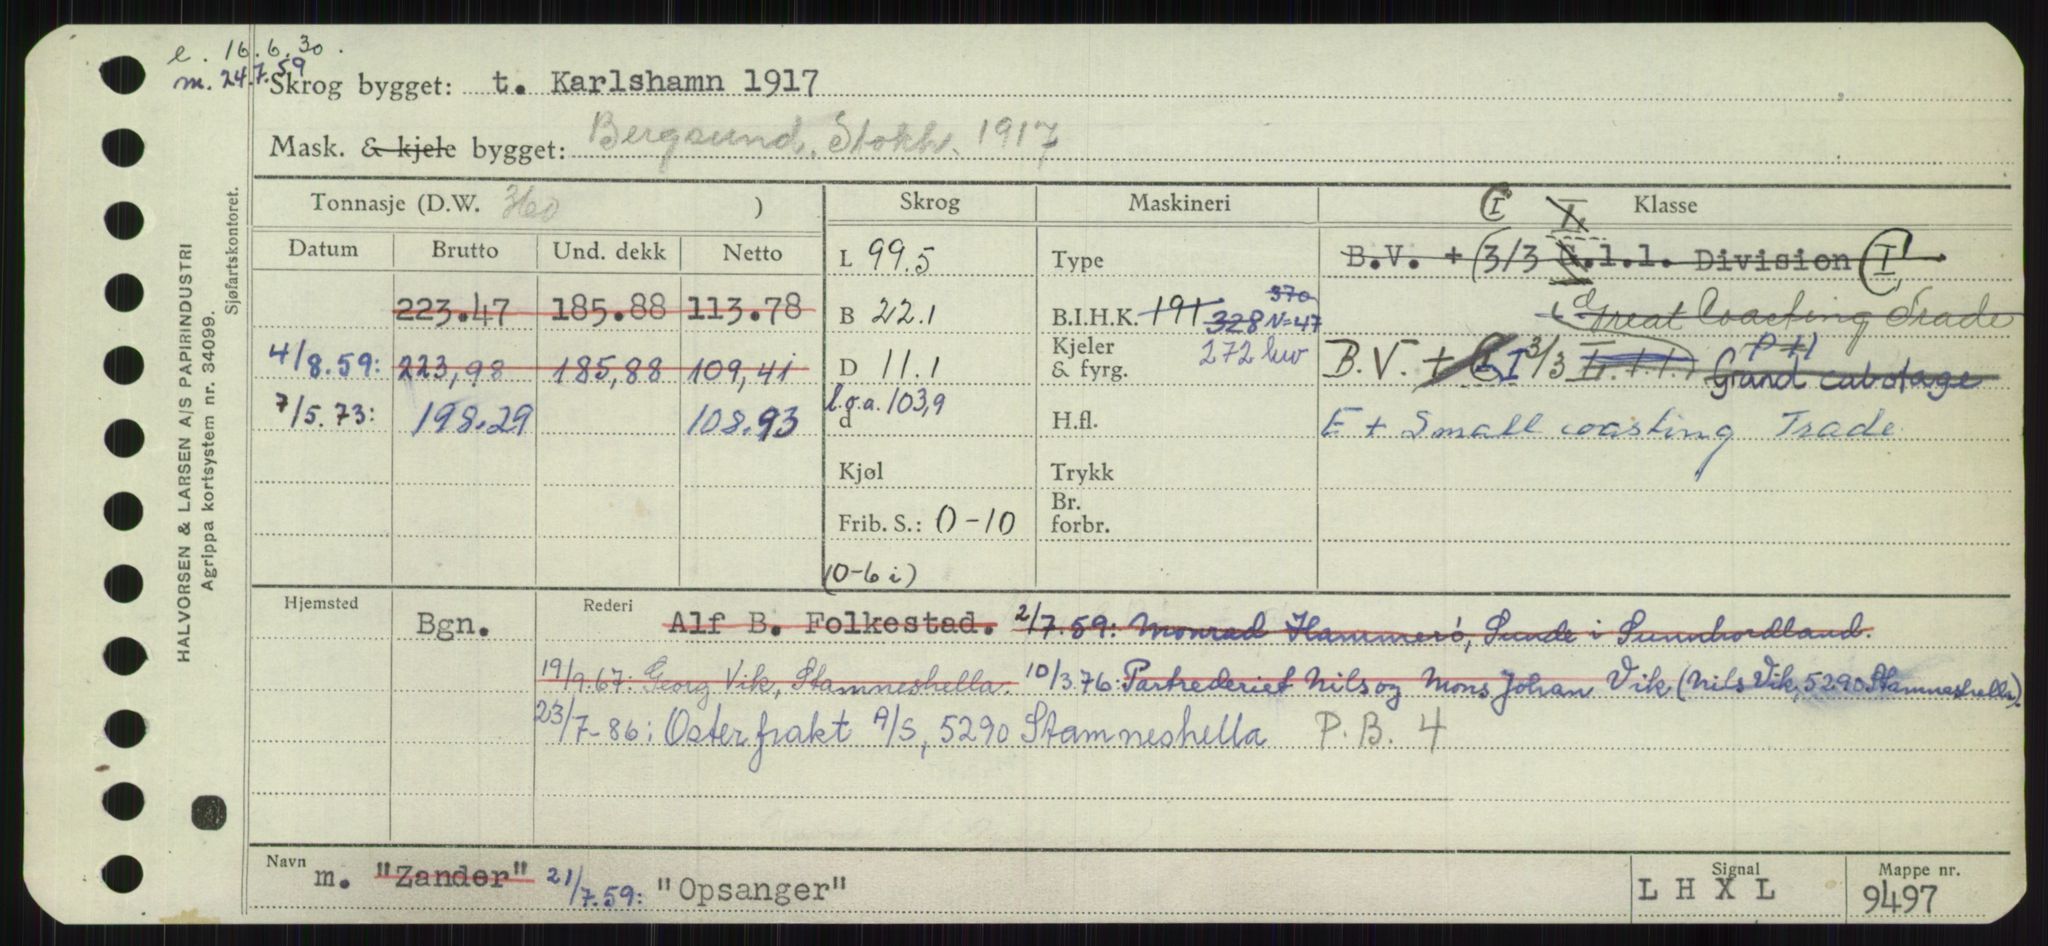 e. 16.6.30.
m. 24.7.59
Skrog bygget: t. Karlshamn 1917
Mask. & kjele bygget: Bergsund, Stokh. 1917
Tonnasje (D.W. 360 )
Skrog
Maskineri
I
Klasse
Datum Brutto Und. dekk Netto
L 99.5
Type
B.V. + (3/3 1.1. Division (I)
223.47 185.88 113.78
B 22.1
B.I.H.K. 191 328 370 N=47
Great Coasting Trade
272 kw
4/8.59: 223,98 185,88 109,41
D 11.1
Kjeler & fyrg.
B.V. + I 3/3 Grand cabotage
l.o.a. 103,9
7/5.73: 198.29 108.93
d
H.fl.
E + Small coasting Trade
Kjøl
Trykk
Frib. S.: 0-10
Br. forbr.
(0-6 i)
Hjemsted
Bgn.
Rederi
Alf B. Folkestad. 2/7.59: Monrad Hammerø, Sunde i Sunnhordland.
19/9.67: Georg Vik, Stamneshella. 10/3.76: Partrederiet Nils og Mons Johan Vik (Nils Vik, 5290 Stamneshella).
23/7-86: Osterfrakt A/S, 5290 Stamneshella P.B. 4
Navn
m. "Zander" 21/7.59: "Opsanger"
Signal
L H X L
Mappe nr.
9497
HALVORSEN & LARSEN A/S PAPIRINDUSTRI
Agrippa kortsystem nr. 34099.
Sjøfartskontoret.